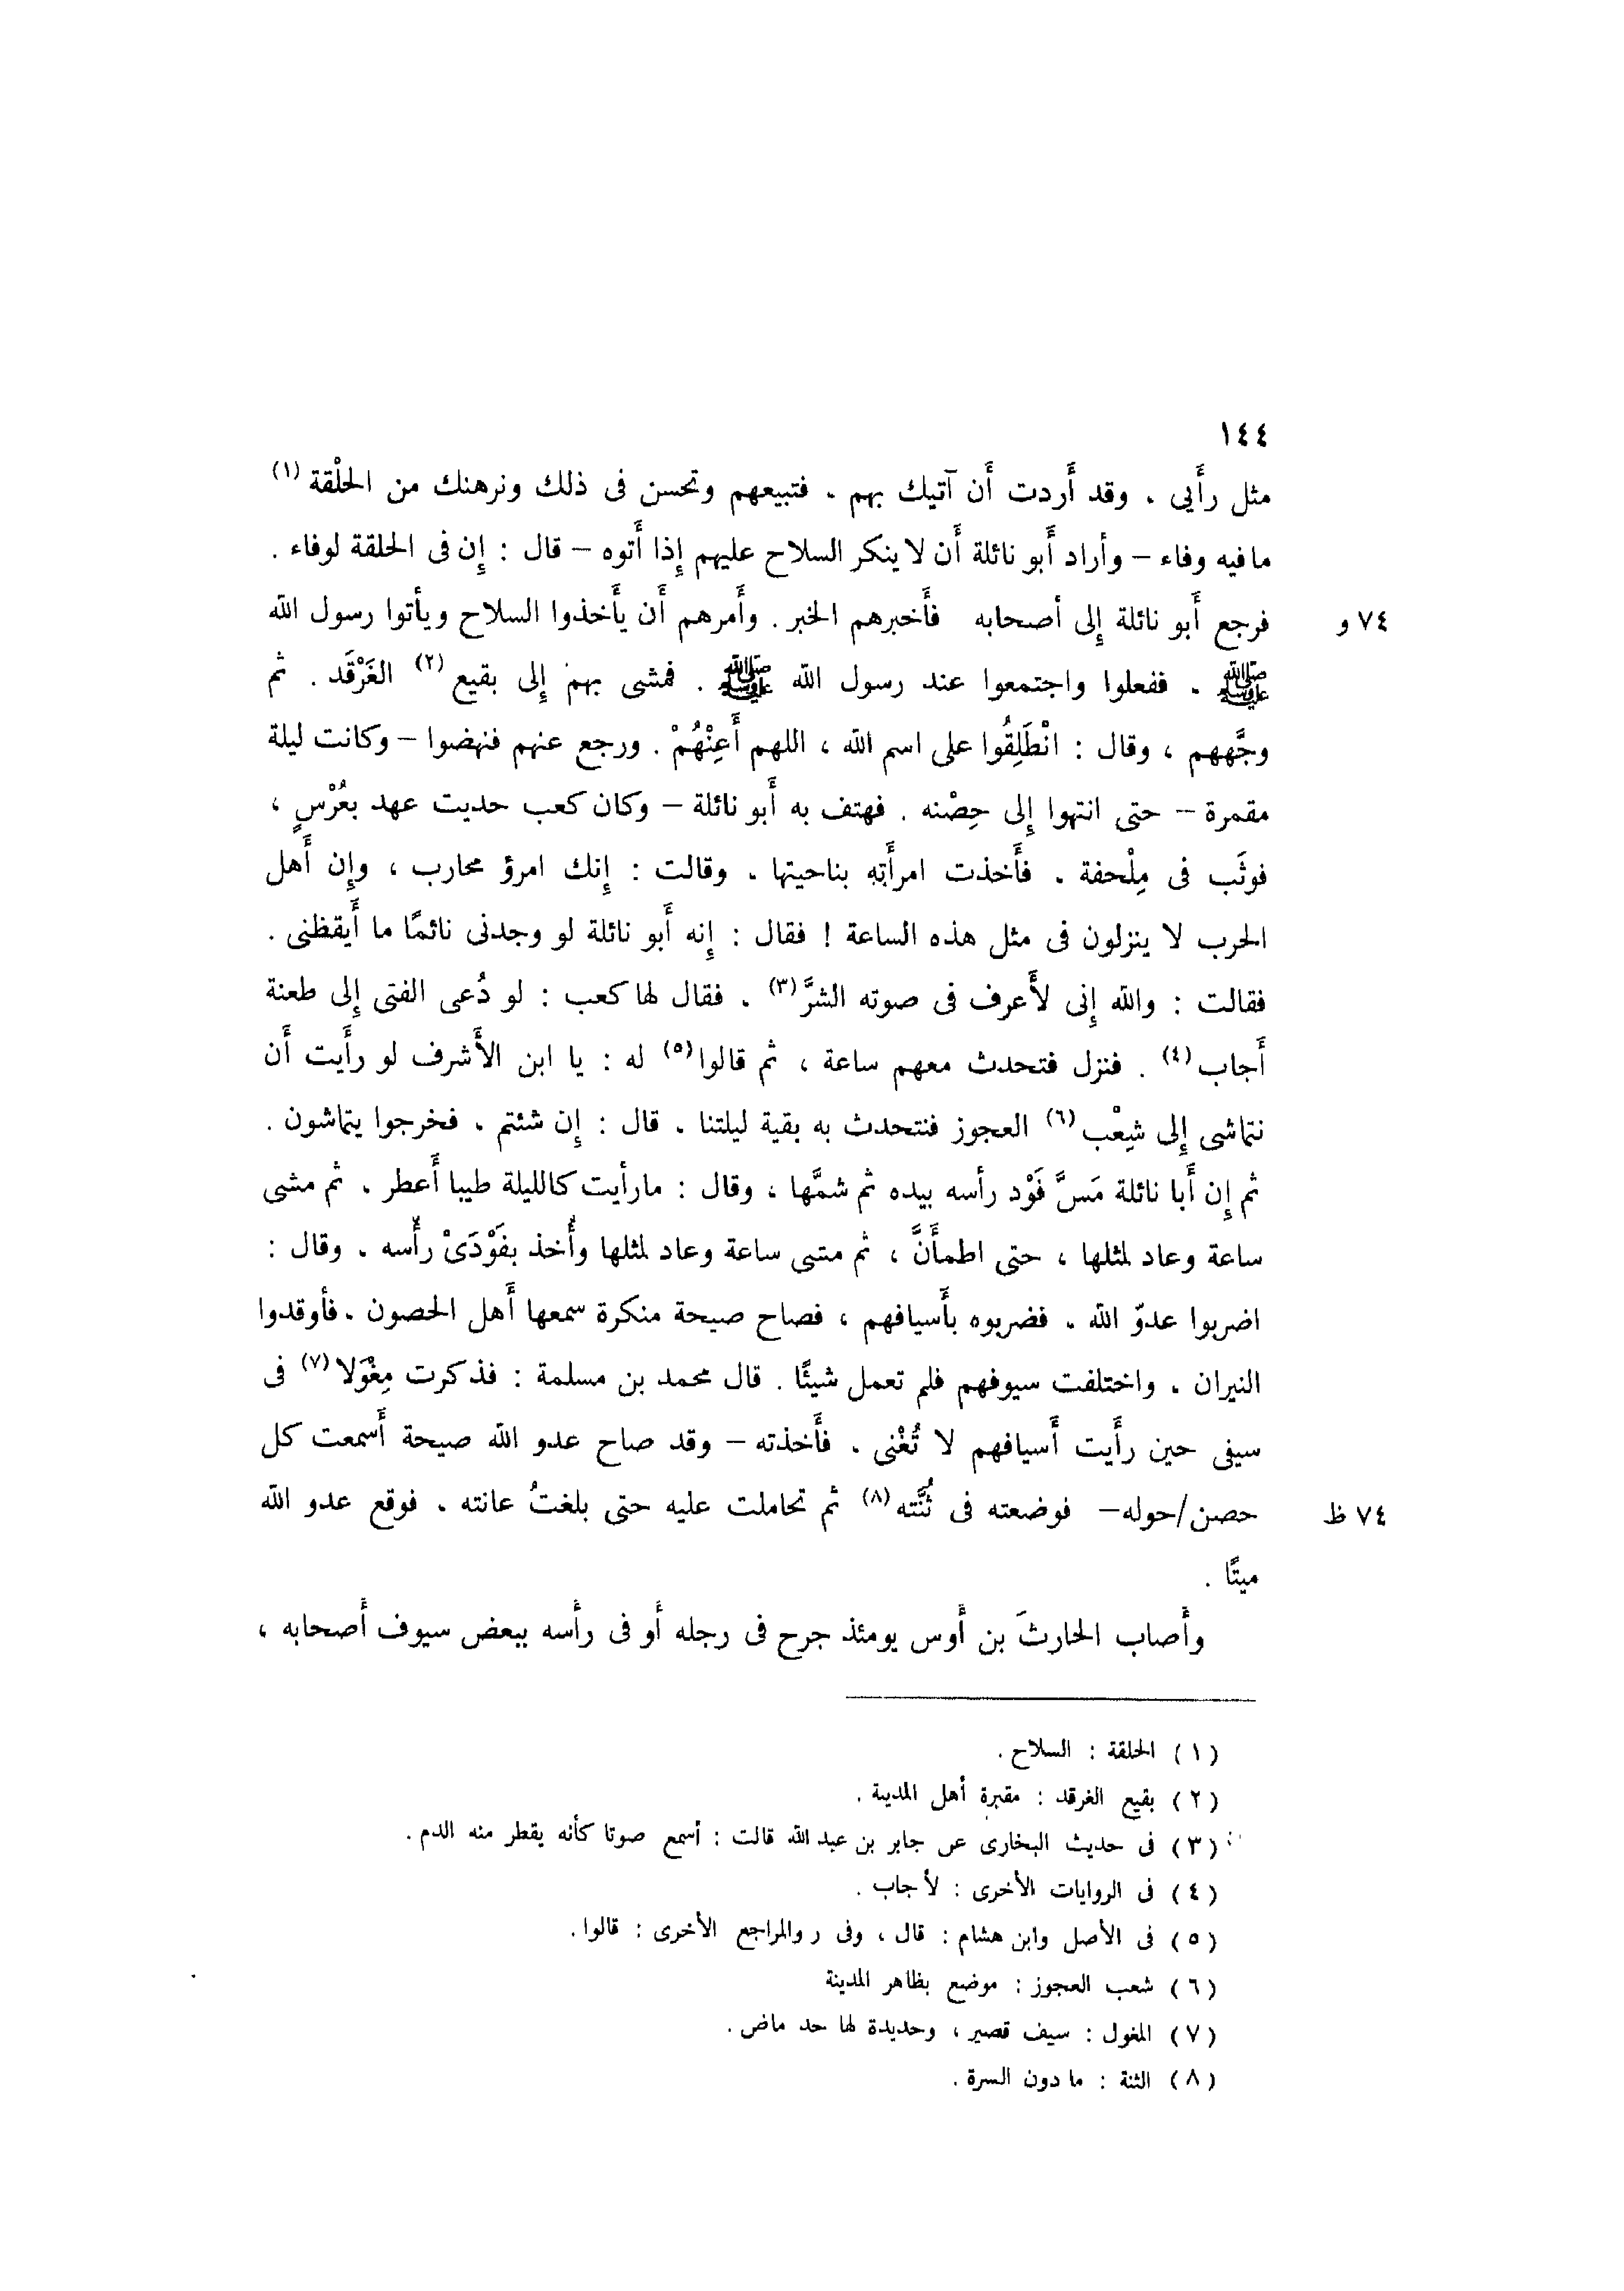 ١٤٤
مثل رأَيى ، وقد أَردت أَن آتيك بهم ، فتبيعهم وتحسن فى ذلك ونرهنك من الحلْقة (١)
مافيه وفاء – وأراد أَبو نائلة أَن لا ينكر السلاح عليهم إِذا أَتوه – قال : إِن فى الحلقة لوفاء .
فرجع أَبو نائلة إِلى أصحابه فأَخبرهم الخبر . وأَمرهم أَن يأَخذوا السلاح ويأتوا رسول الله ٧٤ و
ﷺ . ففعلوا واجتمعوا عند رسول الله ﷺ . فمشى بهم إِلى بقيع (٢) الغَرْقَد . ثم
وجَّههم ، وقال : انْطَلِقُوا على اسم الله ، اللهم أَعِنْهُمْ . ورجع عنهم فنهضوا – وكانت ليلة
مقمرة – حتى انتهوا إِلى حِصْنه . فهتف به أَبو نائلة – وكان كعب حديت عهد بعُرْسٍ ،
فوثَب فى مِلْحفة . فأَخذت امرأَته بناحيتها . وقالت : إِنك امرؤ محارب ، وإِن أَهل
الحرب لا ينزلون فى مثل هذه الساعة ! فقال : إِنه أَبو نائلة لو وجدنى نائمًا ما أَيقظنى .
فقالت : والله إِنى لأَعرف فى صوته الشرَّ (٣) . فقال لها كعب : لو دُعى الفتى إِلى طعنة
أَجاب (٤) . فنزل فتحدث معهم ساعة ، ثم قالوا (٥) له : يا ابن الأَشرف لو رأَيت أَن
نتماشى إِلى شِيعْب (٦) العجوز فنتحدث به بقية ليلتنا . قال : إِن شئتم . فخرجوا يتماشون .
ثم إِن أَبا نائلة مَسَّ فَوْد رأسه بيده ثم شمَّها ، وقال : مارأيت كالليلة طيبا أَعطر . ثم مشى
ساعة وعاد لمثلها ، حتى اطمأَنَّ ، ثم متى ساعة وعاد لمثلها وأَخذ بفَوْدَىْ رأْسه . وقال :
اضربوا عدوّ الله . فضربوه بأَسيافهم ، فصاح صيحة منكرة سمعها أَهل الحصون . فأوقدوا
النيران . واختلفت سيوفهم فلم تعمل شيئًا . قال محمد بن مسلمة : فذكرت مِغْوَلا (٧) فى
سيفى حين رأَيت أَسيافهم لا تُغْنى . فأَخذته – وقد صاح عدو الله صيحة أَسمعت كل
حصن/حوله – فوضعته فى ثُنَّته (٨) ثم تحاملت عليه حتى بلغتُ عانته . فوقع عدو الله ٧٤ ظ
ميتًا .
وأَصاب الحارثَ بن أَوس يومئذ جرح فى رجله أَو فى رأَسه ببعض سيوف أَصحابه ،
(١) الحلقة : السلاح .
(٢) بقيع الغرقد : مقبرة أهل المدينة .
(٣) فى حديث البخارى عن جابر بن عبد الله قالت : أسمع صوتا كأنه يقطر منه الدم .
(٤) فى الروايات الأخرى : لأجاب .
(٥) فى الأصل وابن هشام : قال ، وفى ر والمراجع الأخرى : قالوا .
(٦) شعب العجوز : موضع بظاهر المدينة
(٧) المغول : سيف قصير ، وحديدة لها حد ماض .
(٨) الثنة : ما دون السرة .